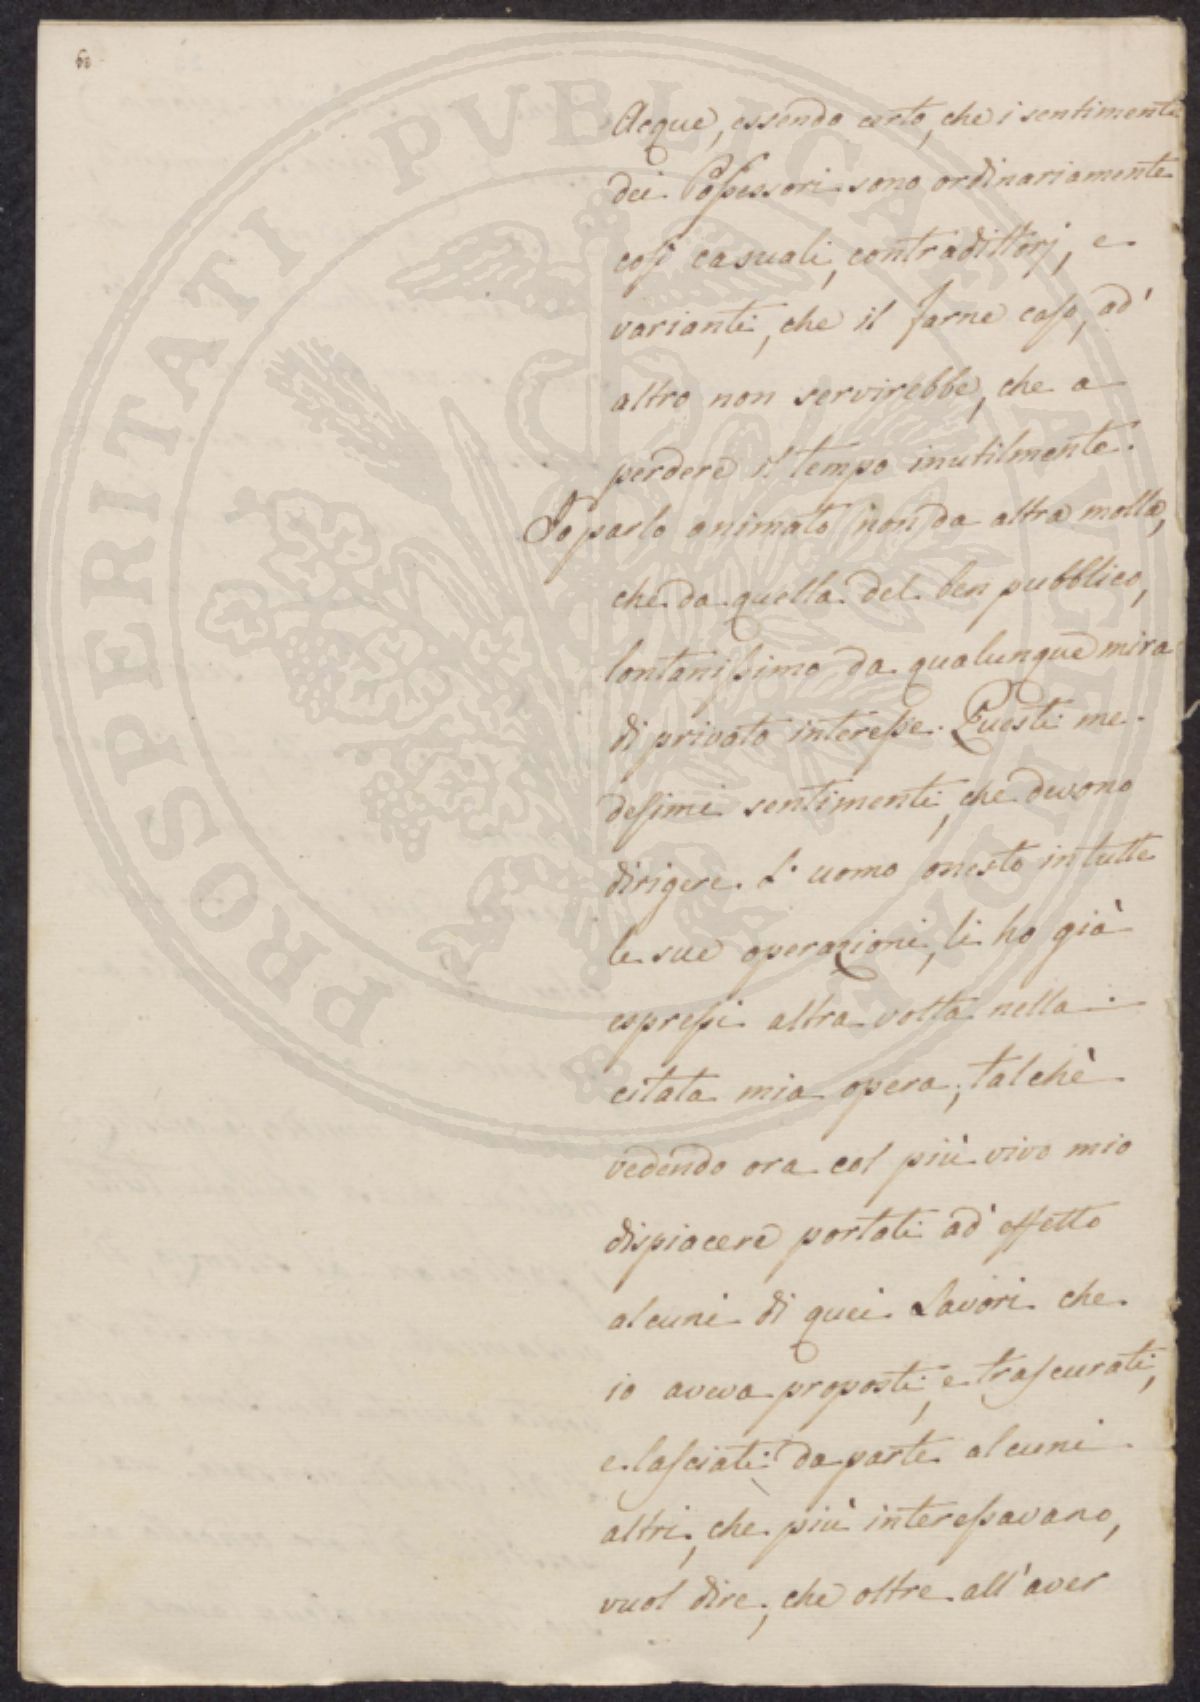 Acque, essendo certo, che i sentimenti
dei Possessori sono ordinariamente
così casuali, contradittorj, e
varianti, che il farne caso, ad'
altro non servirebbe, che a
perdere il tempo inutilmente.
Io parlo animato non da altra molla,
che da quella del ben pubblico,
lontanissimo da qualunque mira
di privato interesse. Questi me-
desimi sentimenti, che devono
dirigere l'uomo onesto in tutte
le sue operazioni, li ho già
espressi altra volta nella
citata mia opera; talchè
vedendo ora col più vivo mio
dispiacere portati ad' effetto
alcuni di quei Lavori che
io aveva proposti, e trascurati,
e lasciati da parte alcuni
altri, che più interessavano,
vuol dire, che oltre all'aver
PROSPERITATI PVBLICAE AVGENDAE